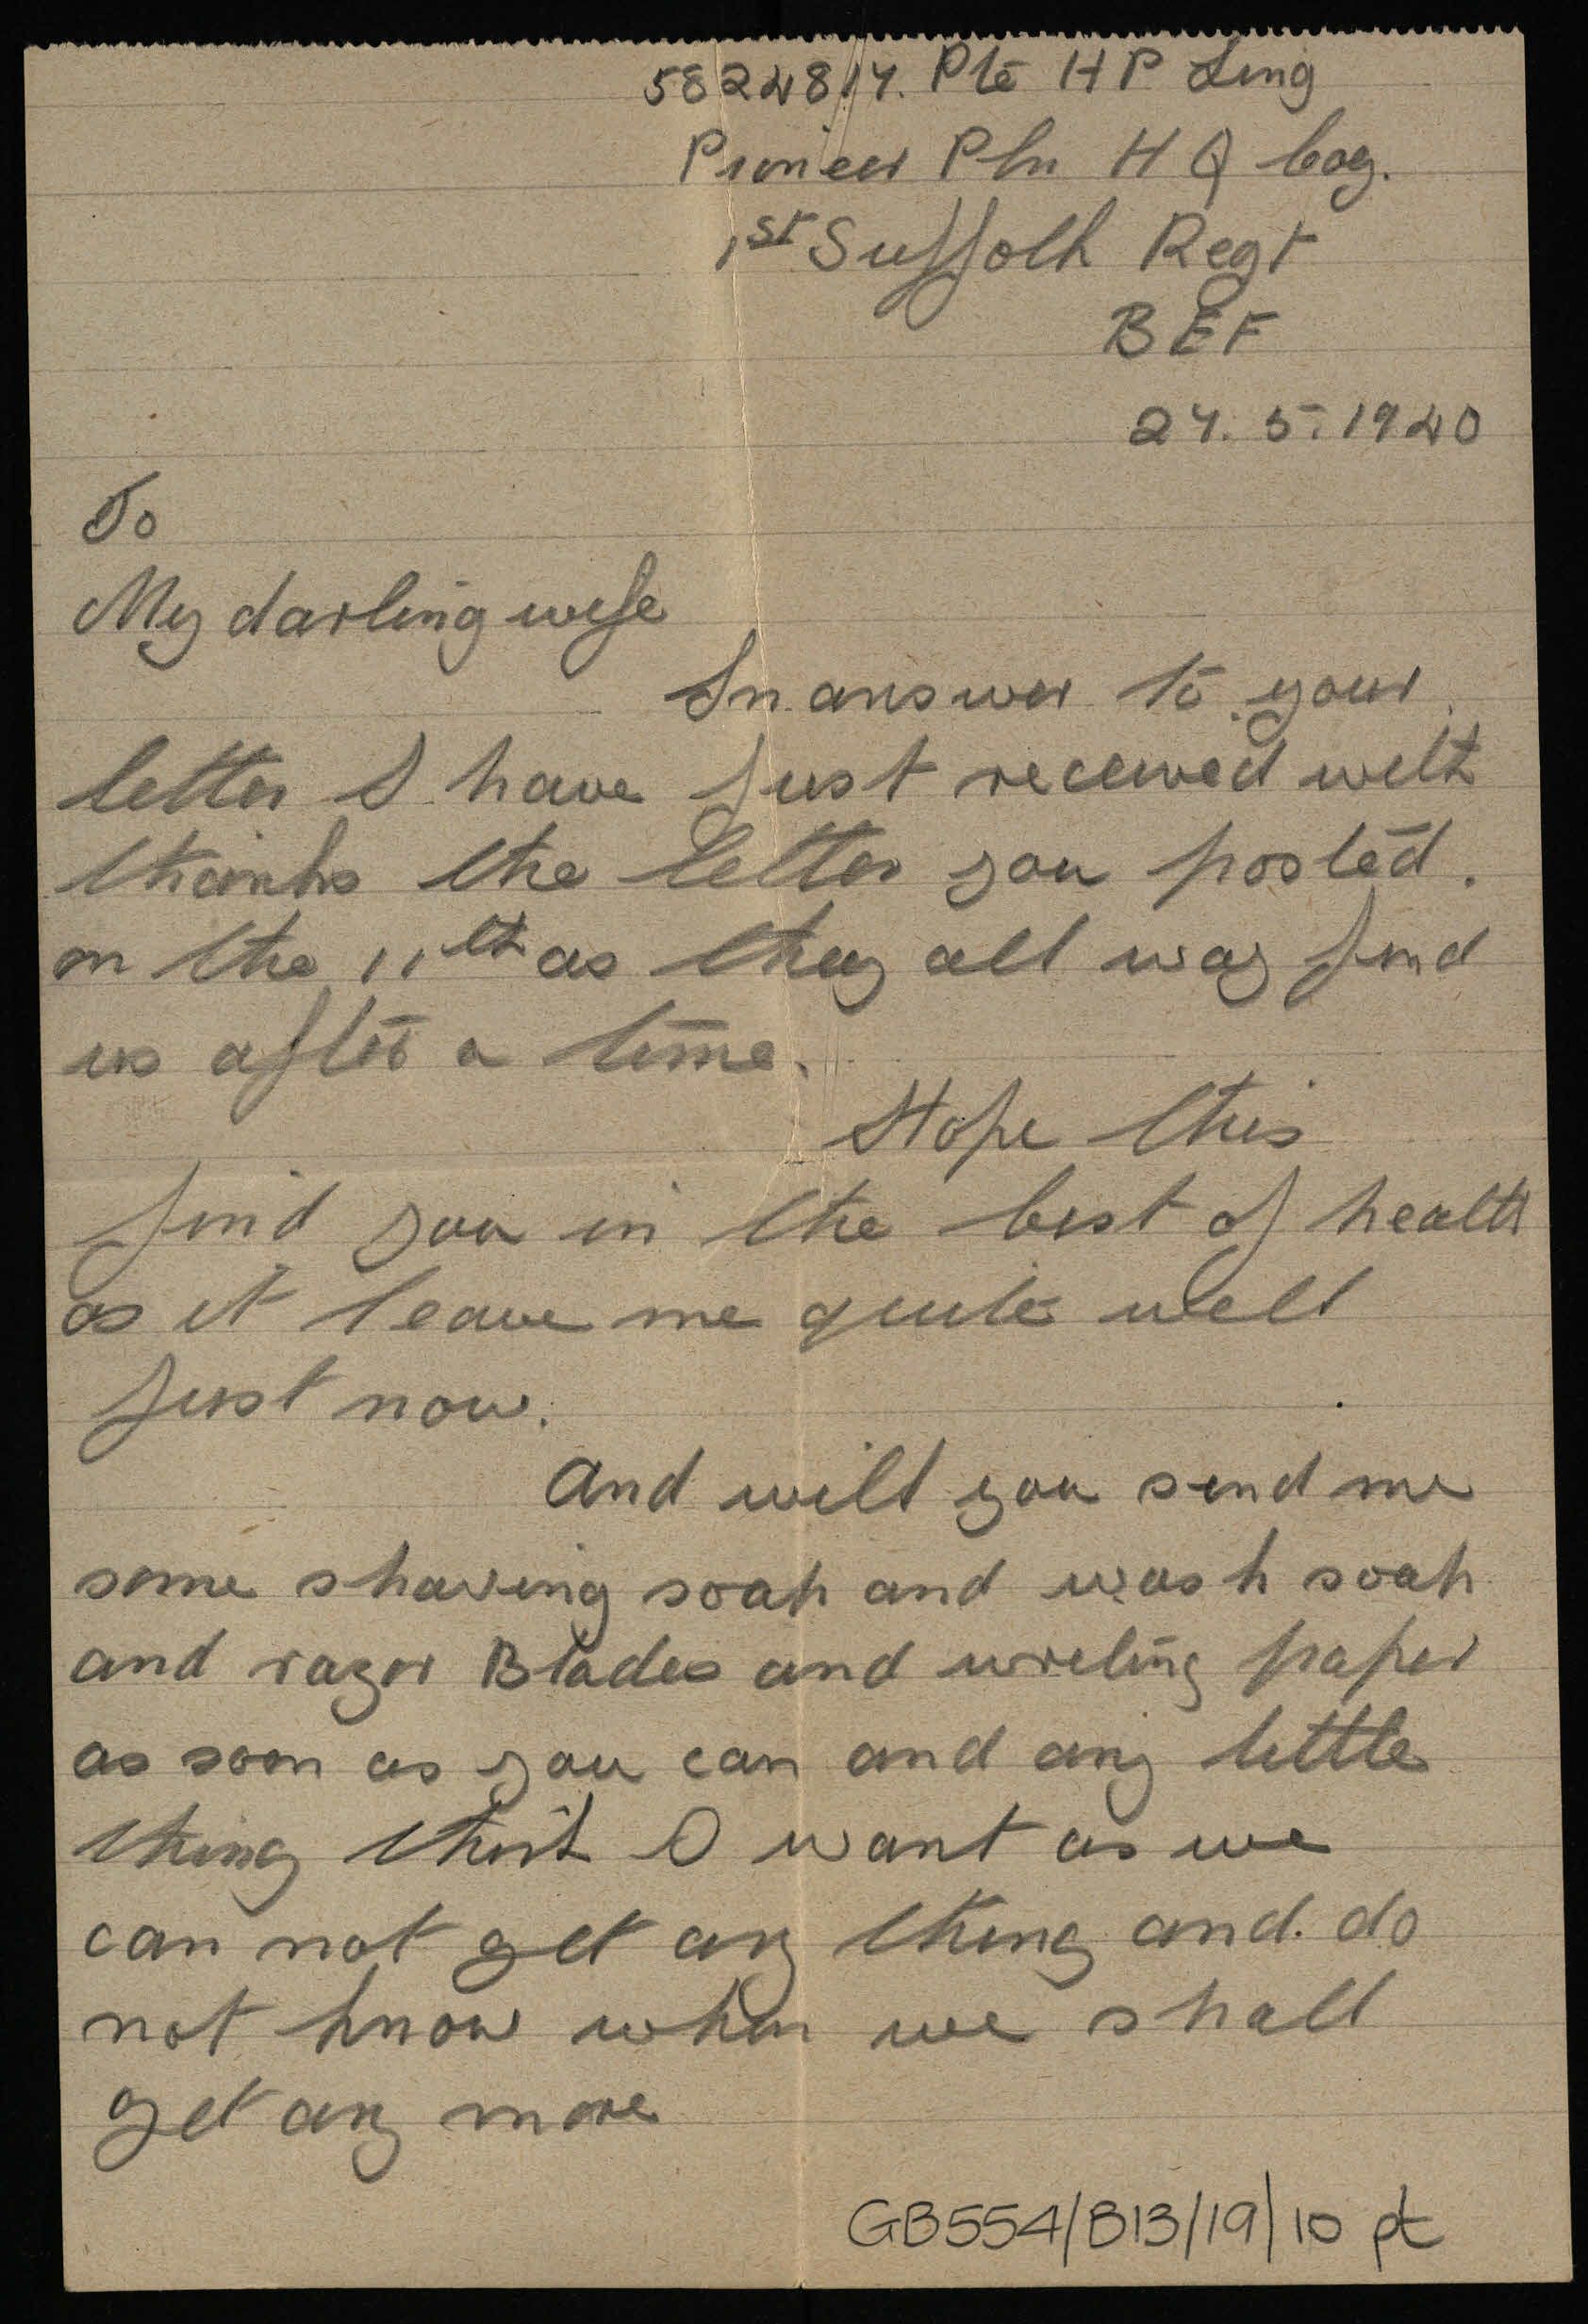 5824817. Pte H P Ling
Pionier Pln H Q Coy.
1st Suffolk Regt
BEF
27.5.1940
To
My darling wife
In answer to your
letter I have just received with
thanks the letter you posted.
on the 11th as they all way find
us after a time.
Hope this
find you in the best of health
as it leave me quite well
just now.
And will you send me
some shaving soap and wash soap
and razor Blades and writing paper
as soon as you can and any little
thing that I want as we
can not get any thing and. do
not know when we shall
get any more
GB554/B13/19/10 pt